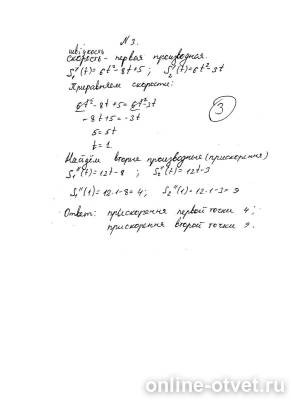 N 3.
швiдкость
Скорость - первая производная.
S₁'(t) = 6t² - 8t + 5 ; S₂'(t) = 6t² - 3t
Приравняем скорости:
6t² - 8t + 5 = 6t² - 3t
3
- 8t + 5 = - 3t
5 = 5t
t = 1
Найдём вторые производные (прискорення)
S₁''(t) = 12t - 8 ; S₂''(t) = 12t - 3
S₁''(1) = 12·1 - 8 = 4 ; S₂''(1) = 12·1 - 3 = 9
Ответ: прискорення первой точки 4 ;
прискорення второй точки 9.
online-otvet.ru